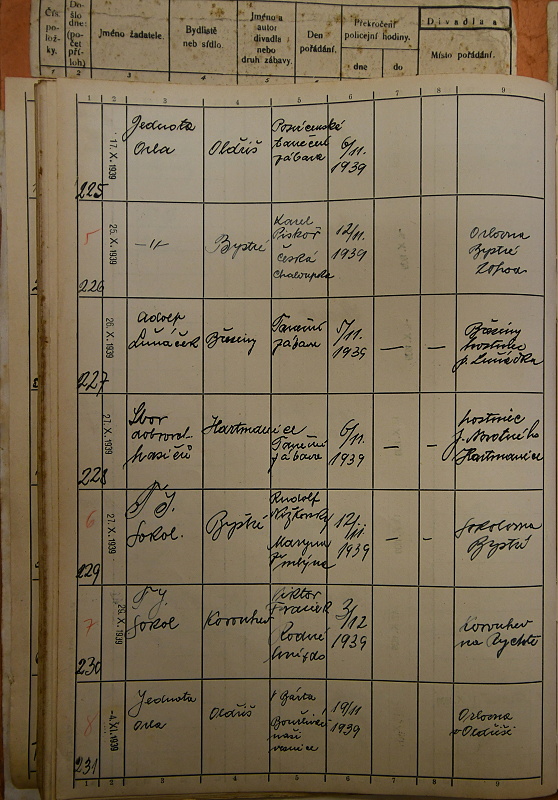 Čís.
po-
ložky.
Do-
šlo
dne:
(po-
čet
pří-
loh)
Jméno žadatele.
Bydliště
neb sídlo.
Jméno a
autor
divadla
nebo
druh zábavy.
Den
pořádání.
Překročení
policejní hodiny.
dne
do
Divadla a
Místo pořádání.
1 2 3 4 5 6 7 8 9
225
17. X. 1939
Jednota
Orla
Oldřiš
Posvícenská
taneční
zábava
6/11.
1939
5
226
25. X. 1939
-"-
Bystré
Karel
Piskoř
Česká
chaloupka
12/11.
1939
Orlovna
Bystré
227
26. X. 1939
Adolf
Luňáček
Březiny
Taneční
zábava
5/11.
1939
—
—
Březiny
hostinec
p. Luňáčka
228
27. X. 1939
Sbor
dobrovol.
hasičů
Hartmanice
Taneční
zábava
6/11.
1939
—
—
hostinec
p. Novotného
Hartmanice
6
229
27. X. 1939
T. J.
Sokol.
Bystré
Rudolf
Maryna
12./11.
1939
—
—
Sokolovna
Bystré
7
230
29. X. 1939
T. J.
Sokol
Korouhev
Viktor
Rodné
hnízdo
3/12
1939
Korouhev
na Rychtě
8
231
-4. XI. 1939
Jednota
Orla
Oldřiš
Bárta
Bouřliváci
naší
vesnice
19/11
1939
Orlovna
v Oldřiši
1 2 3 4 5 6 7 8 9